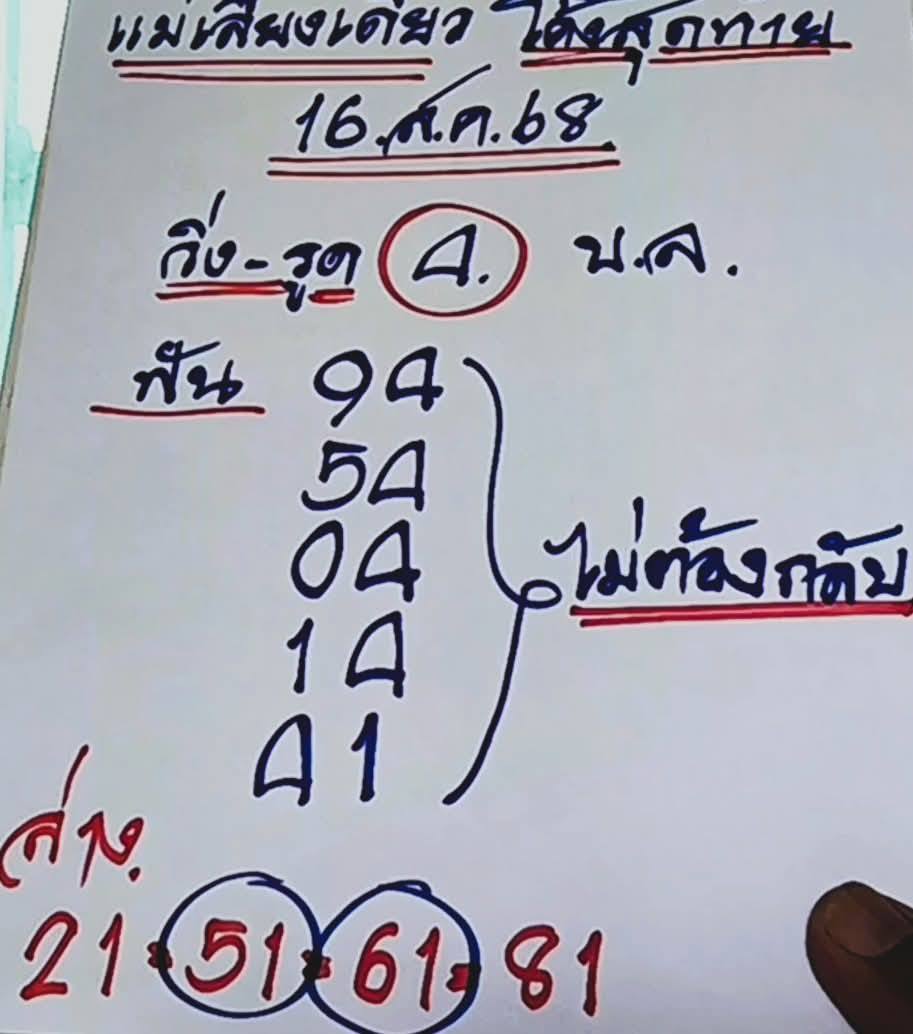 แม่เสียงเดียว โค้งสุดทาย
16.ส.ค.68.
วิ่ง-รูด 4. บ.ล.
ฟัน 94
54
04
14
41
ไม่ต้องกลับ
ล่าง.
21.51.61.81